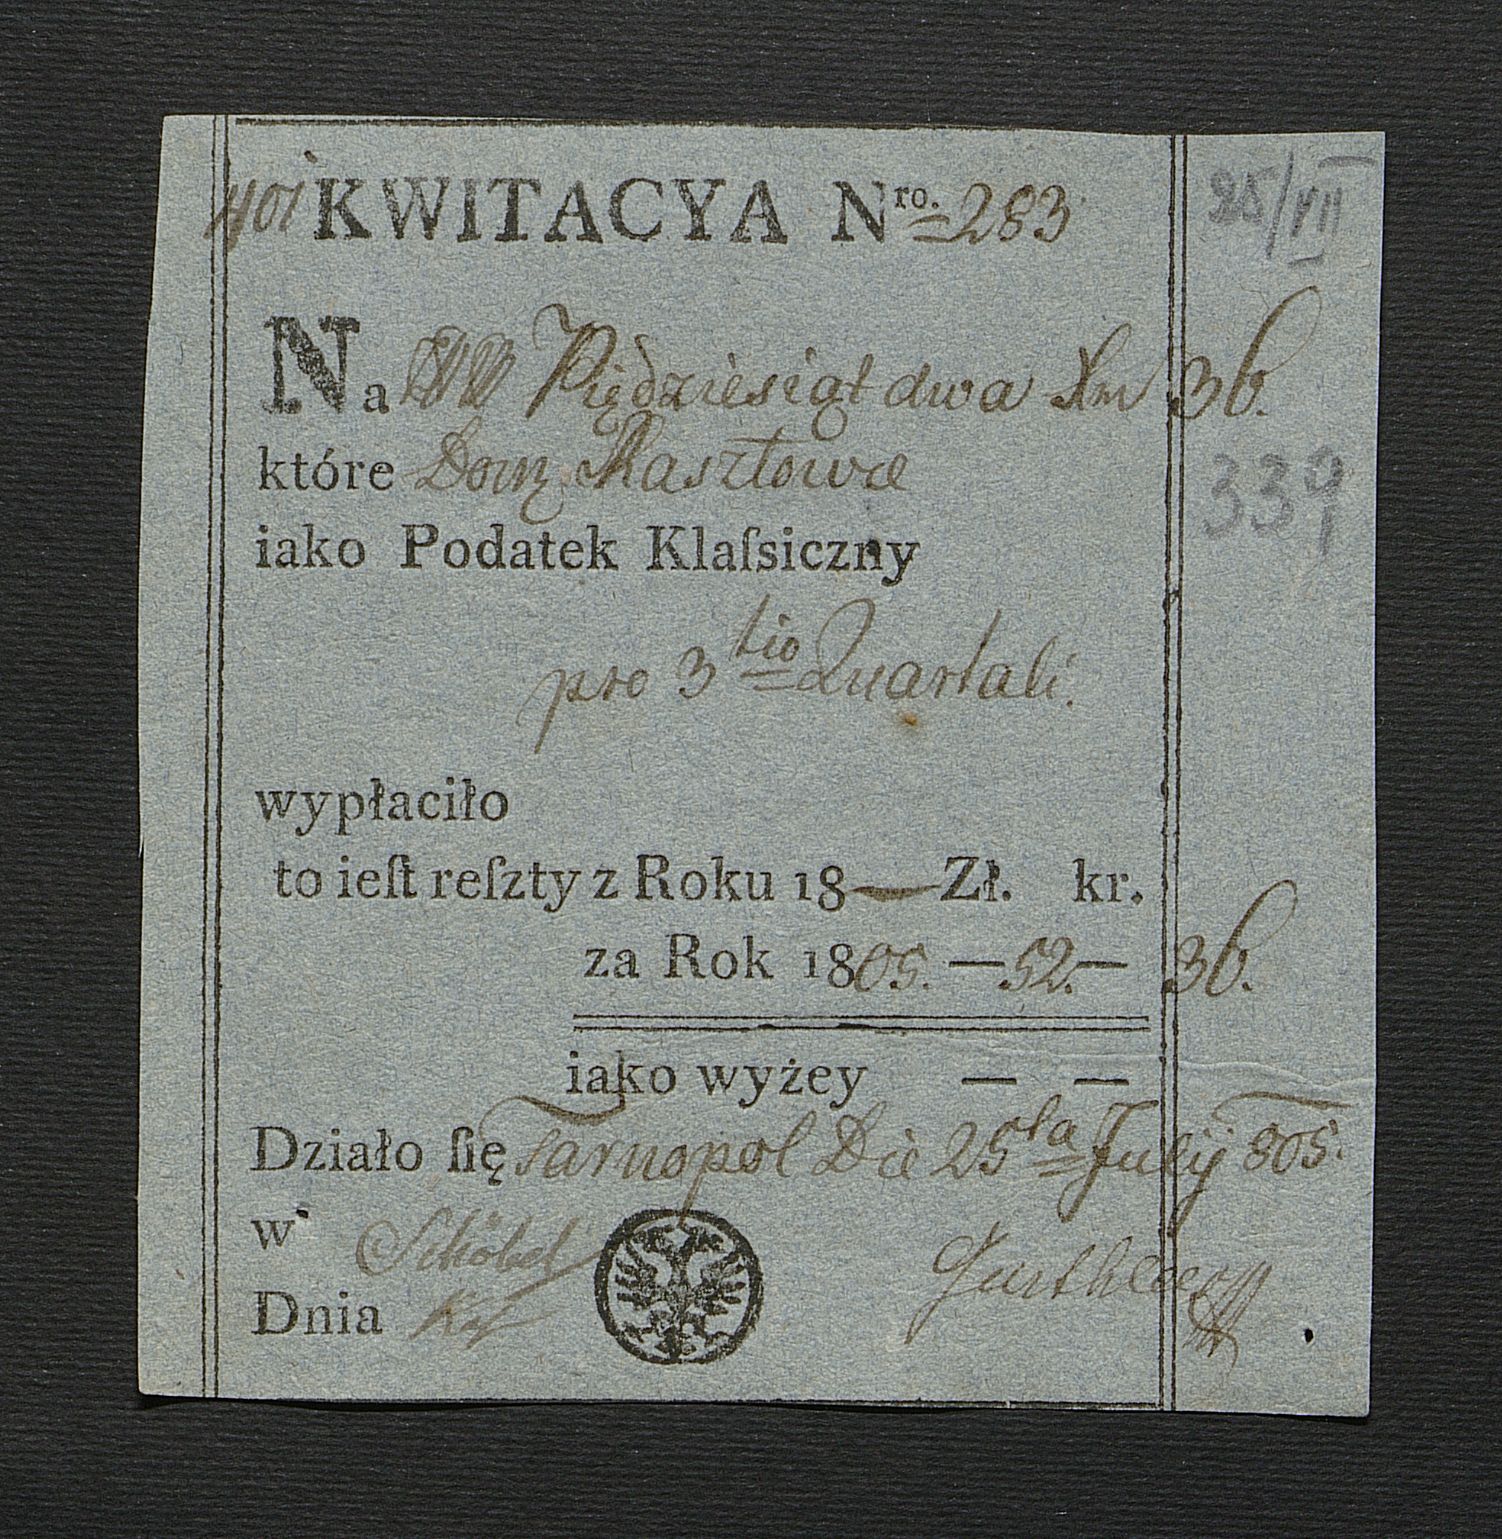 401 KWITACYA Nro. 283
25/VII
Na Piędziesiąt dwa Xr 36.
które Dom. Kasztowce
339
iako Podatek Klaſsiczny
pro 3tio Quartali.
wypłaciło
to ieſt reſzty z Roku 18— Zł. kr.
za Rok 1805. — 52. — 36.
iako wyżey — —
Działo ſię Tarnopol Die 25ta Julij 805.
w Schöbel
Dnia